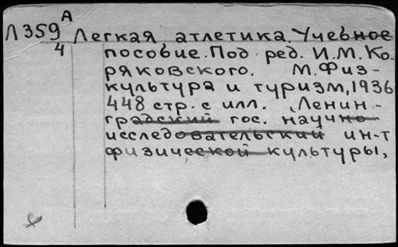 А
Л359 Легкая атлетика. Учебное
4 пособие. Под ред. И.М.Ко-
ряковского. М. Физ-
культура и туризм, 1936
448 стр. с илл. (Ленин-
градский гос. научно
исследовательский ин-т
физической культуры,